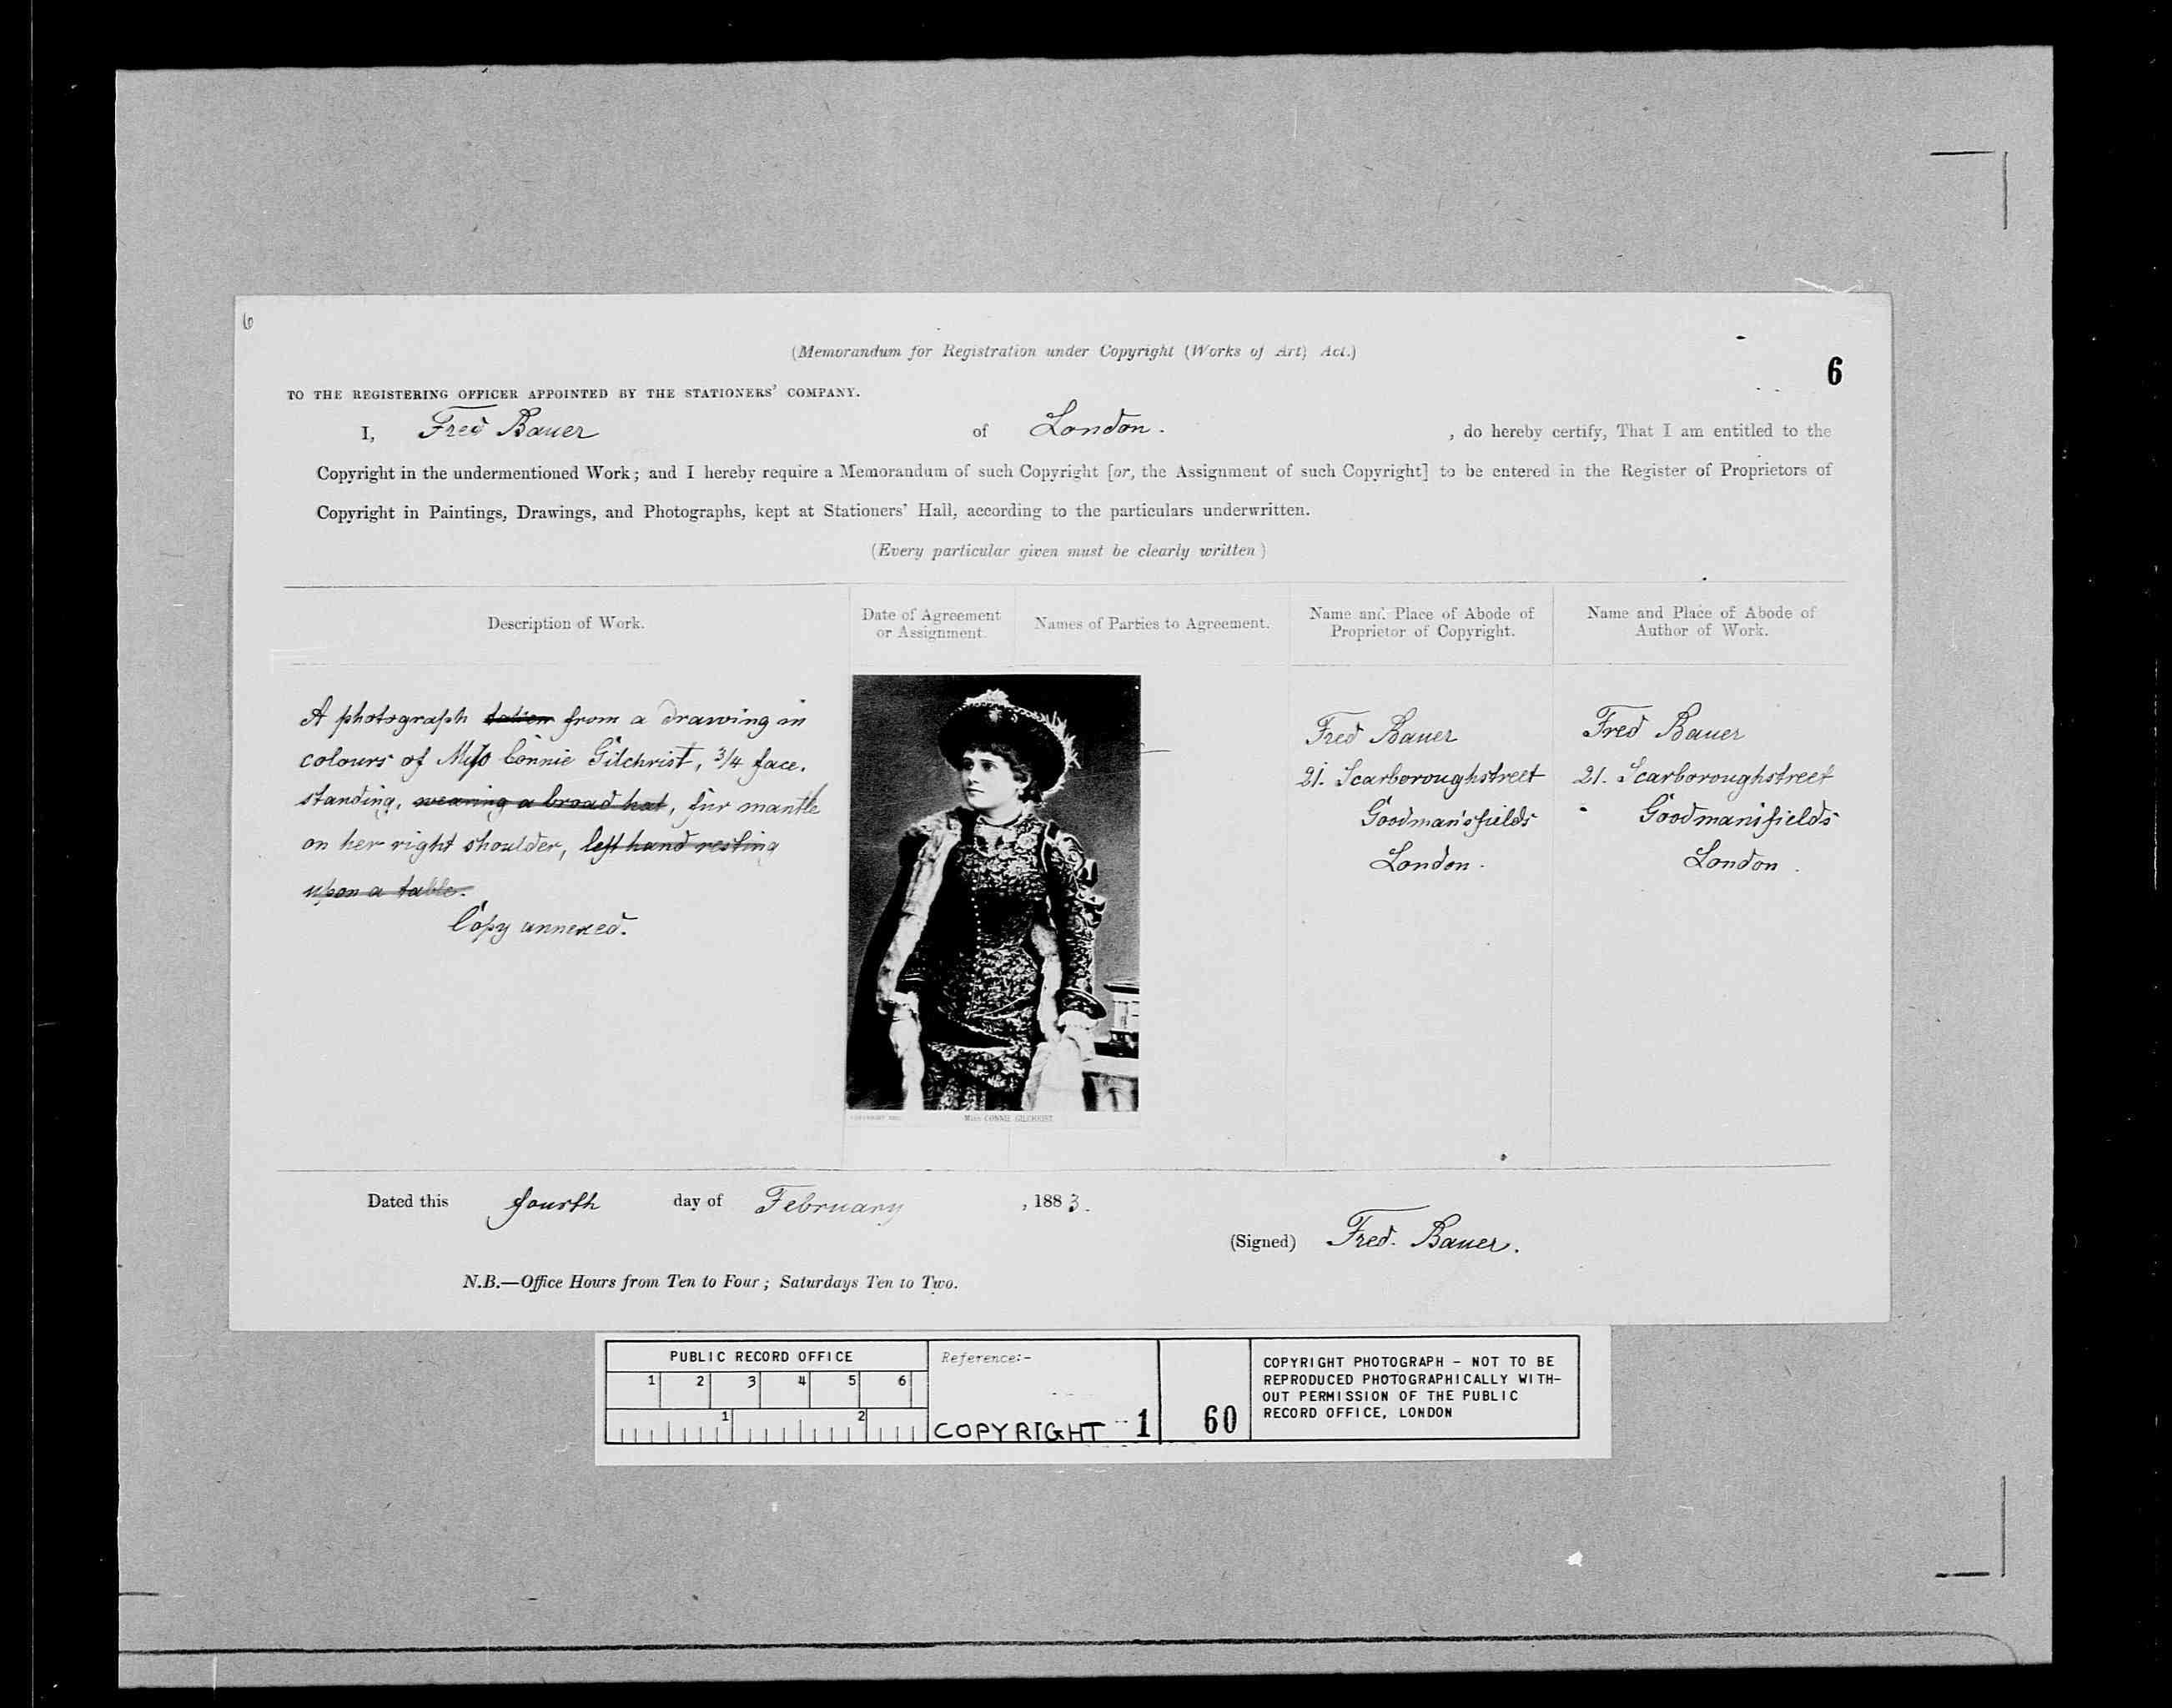 6
(Memorandum for Registration under Copyright (Works of Art) Act.)
6
TO THE REGISTERING OFFICER APPOINTED BY THE STATIONERS' COMPANY.
I, Fred Bauer of London. , do hereby certify, That I am entitled to the
Copyright in the undermentioned Work; and I hereby require a Memorandum of such Copyright [or, the Assignment of such Copyright] to be entered in the Register of Proprietors of
Copyright in Paintings, Drawings, and Photographs, kept at Stationers' Hall, according to the particulars underwritten.
(Every particular given must be clearly written)
Description of Work.
Date of Agreement
or Assignment.
Names of Parties to Agreement.
Name and Place of Abode of
Proprietor of Copyright.
Name and Place of Abode of
Author of Work.
A photograph taken from a drawing in
colours of Miss Connie Gilchrist, 3/4 face.
standing, wearing a broad hat, fur mantle
on her right shoulder, left hand resting
upon a table.
Copy annexed.
Miss CONNIE GILCHRIST
Fred Bauer
21. Scarboroughstreet
Goodman'sfields
London.
Fred Bauer
21. Scarboroughstreet
Goodman'sfields
London.
Dated this fourth day of February , 1883.
(Signed) Fred. Bauer.
N.B.—Office Hours from Ten to Four; Saturdays Ten to Two.
PUBLIC RECORD OFFICE
1 2 3 4 5 6
1 2
Reference:-
COPYRIGHT 1
60
COPYRIGHT PHOTOGRAPH - NOT TO BE
REPRODUCED PHOTOGRAPHICALLY WITH-
OUT PERMISSION OF THE PUBLIC
RECORD OFFICE, LONDON